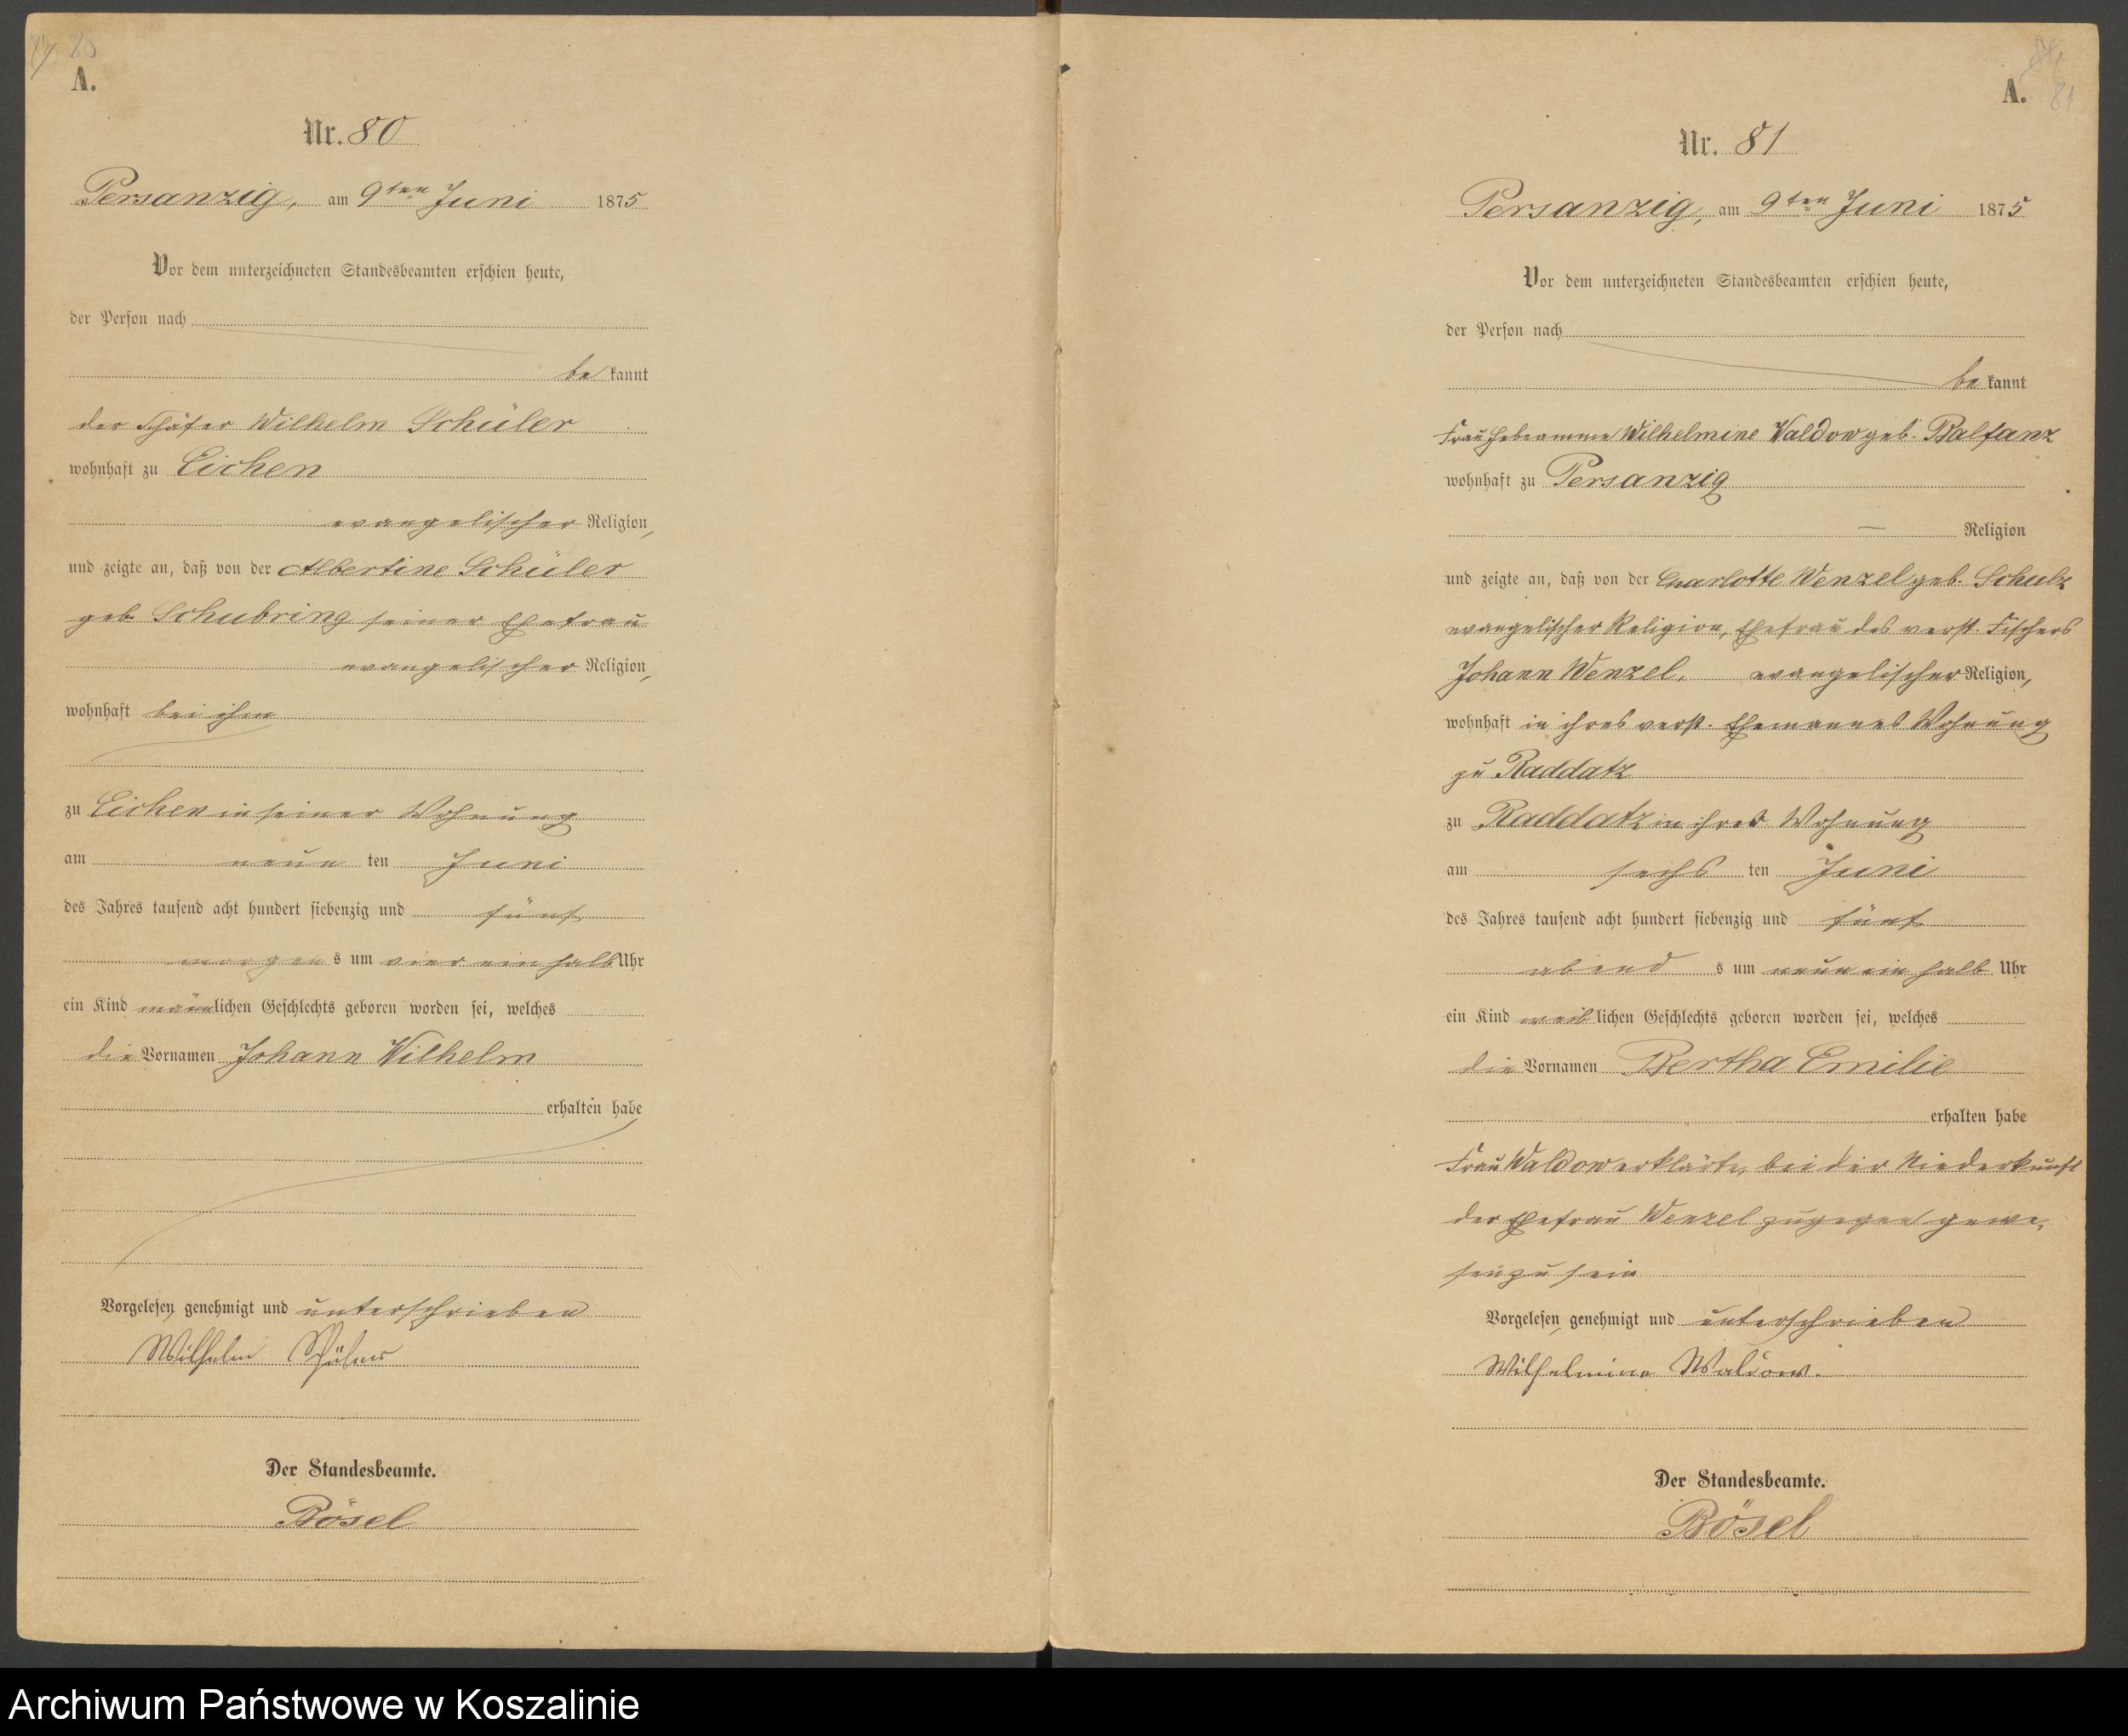 80
A.
Nr. 80
Persanzig, am 9ten Juni 1875
Vor dem unterzeichneten Standesbeamten erschien heute,
der Person nach
be kannt
der Schäfer Wilhelm Schüler
wohnhaft zu Eichen
evangelischer Religion,
und zeigte an, daß von der Albertine Schüler
geb. Schubring seiner Ehefrau
evangelischer Religion,
wohnhaft bei ihm
zu Eichen in seiner Wohnung
am neun ten Juni
des Jahres tausend acht hundert siebenzig und fünf
morgen s um vier ein halb Uhr
ein Kind männlichen Geschlechts geboren worden sei, welches
die Vornamen Johann Wilhelm
erhalten habe
Vorgelesen, genehmigt und unterschrieben
Wilhelm Schüler
Der Standesbeamte.
Bösel
81
A.
Nr. 81
Persanzig, am 9ten Juni 1875
Vor dem unterzeichneten Standesbeamten erschien heute,
der Person nach
be kannt
Frau Hebeamme Wilhelmine Waldow geb. Balfanz
wohnhaft zu Persanzig
— Religion
und zeigte an, daß von der Charlotte Wenzel geb. Schulz
evangelischer Religion, Ehefrau des verst. Fischers
Johann Wenzel, evangelischer Religion,
wohnhaft in ihres verst. Ehemannes Wohnung
zu Raddatz
zu Raddatz in ihrer Wohnung
am sechs ten Juni
des Jahres tausend acht hundert siebenzig und fünf
abend s um neun ein halb Uhr
ein Kind weiblichen Geschlechts geboren worden sei, welches
die Vornamen Bertha Emilie
erhalten habe
Frau Waldow erklärte, bei der Niederkunft
der Ehefrau Wenzel zugegen gewe,
sen zu sein
Vorgelesen, genehmigt und unterschrieben
Wilhelmine Waldow.
Der Standesbeamte.
Bösel
Archiwum Państwowe w Koszalinie